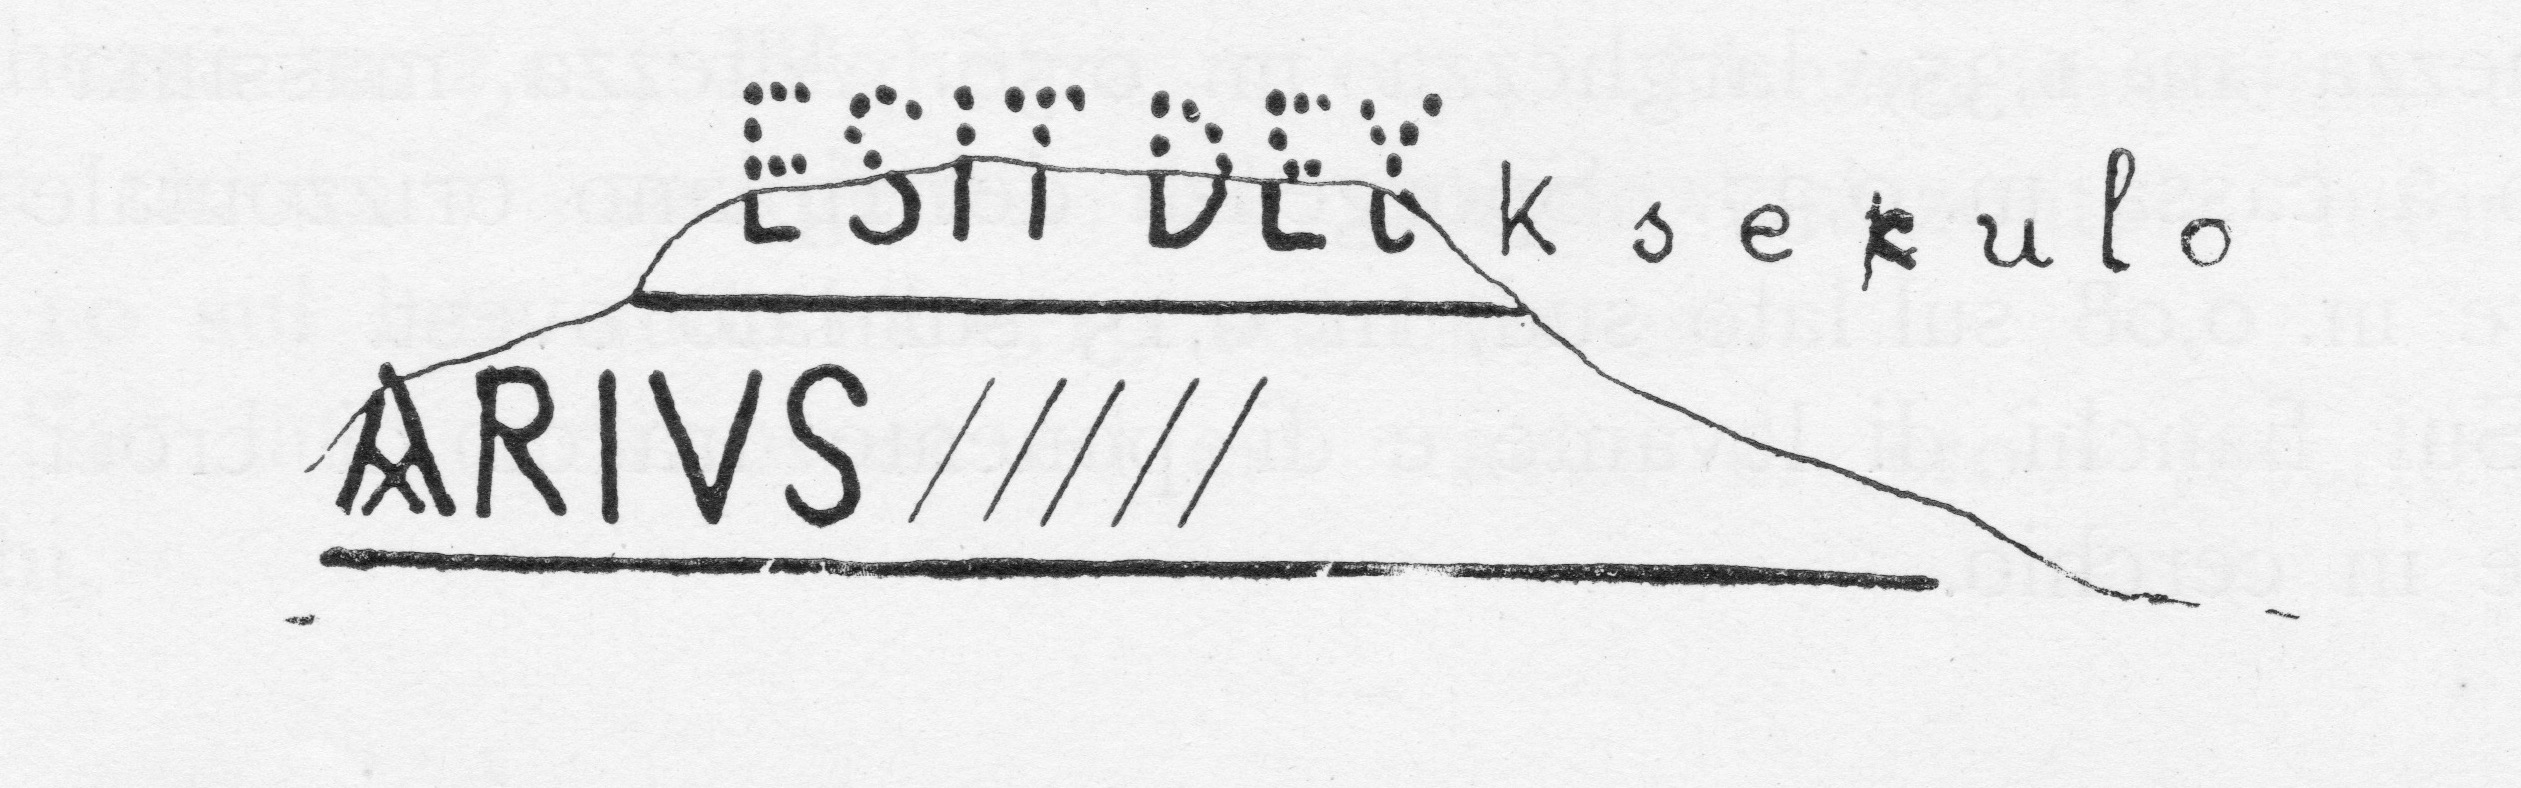 ESIT DEY k sekulo
ARIVS /////